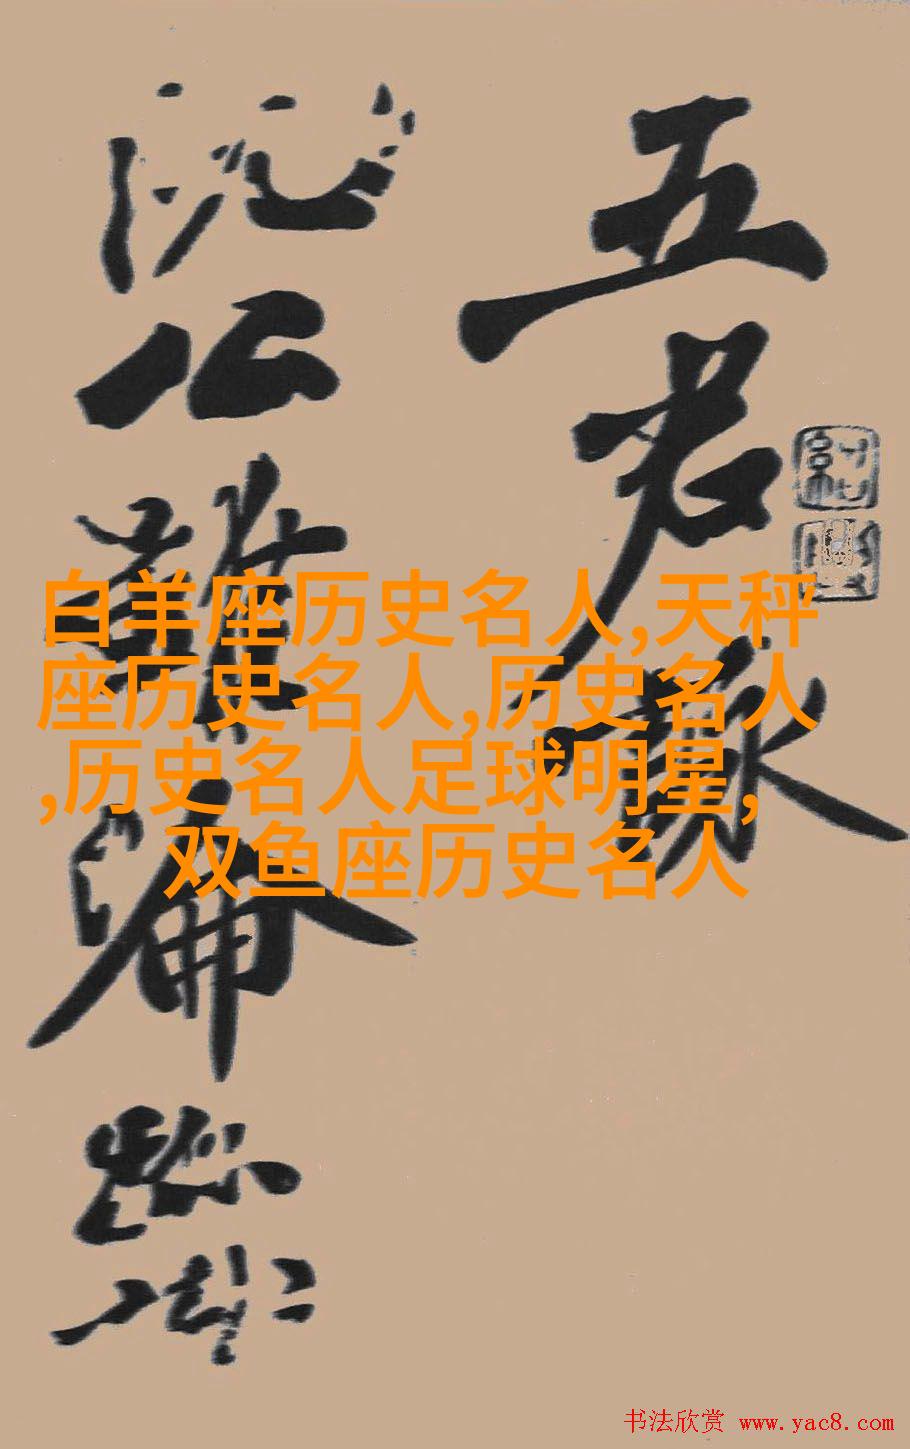 五君詠
阮公雖淪跡
白羊座历史名人,天秤
座历史名人,历史名人
,历史名人足球明星,
双鱼座历史名人
书法欣赏 www.yac8.com